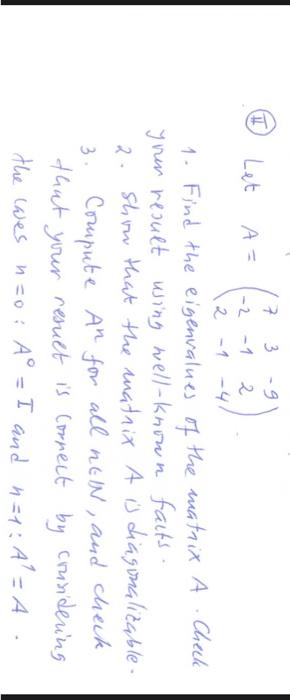 II Let A = ( 7 3 -9
-2 -1 2
2 -1 -4 )
1. Find the eigenvalues of the matrix A. Check
your result using well-known facts.
2. Show that the matrix A is diagonalizable.
3. Compute Aⁿ for all n∈ℕ, and check
that your result is correct by considering
the cases n=0: A⁰ = I and n=1: A¹ = A.